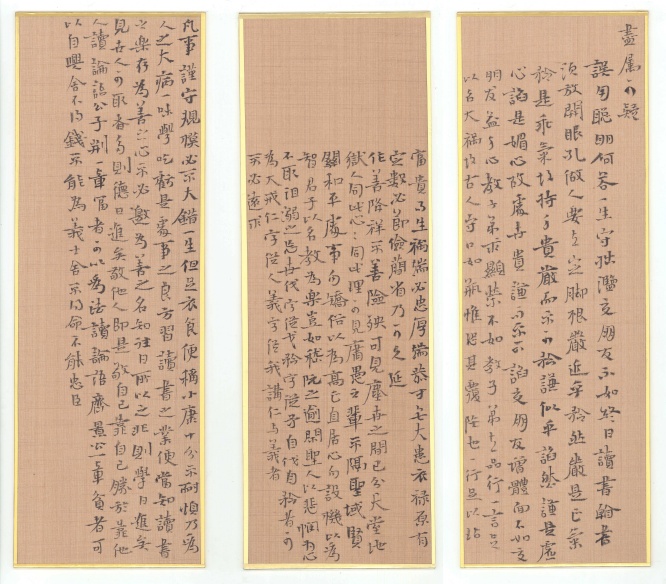 盡属可疑
誤用聰明何若一生守拙濫交朋友不如終日讀書看書
須放開眼孔做人要立定脚根嚴近乎矜然嚴是正氣
矜是乖氣故持身貴嚴而不可矜謙似乎諂然謙是虛
心諂是媚心故處世貴謙而不可諂交朋友增體面不如交
朋友益身心教子弟求顯榮不如教子弟立品行一言足
以召大禍故古人守口如瓶惟恐其覆墜也一行足以玷
富貴易生禍端必忠厚謙恭才無大患衣禄原有
定數必節儉簡省乃可久延
作善降祥不善降殃可見塵世之間已分天堂地
獄人同此心心同此理可見庸愚之輩不隔聖域賢
關和平處事勿矯俗以為高正直居心勿設機以為
智君子以名教為樂豈如嵇阮之逾閑聖人以悲憫為心
不取沮溺之忘世伐字從戈矜字從矛自伐自矜者可
為大戒仁字從人義字從我講仁與義者
不必遠求
凡事謹守規模必不大錯一生但足衣食便稱小康十分不耐煩乃為
人之大病一味學吃虧是處事之良方習讀書之業便當知讀書
之樂存為善之心不必邀為善之名知往日所以之非則學日進矣
見世人可取者多則德日進矣敬他人即是敬自己靠自己勝於靠他
人讀論語公子荆一章富者可以為法讀論語齊景公一章貧者可
以自興舍不得錢不能為義士舍不得命不能忠臣